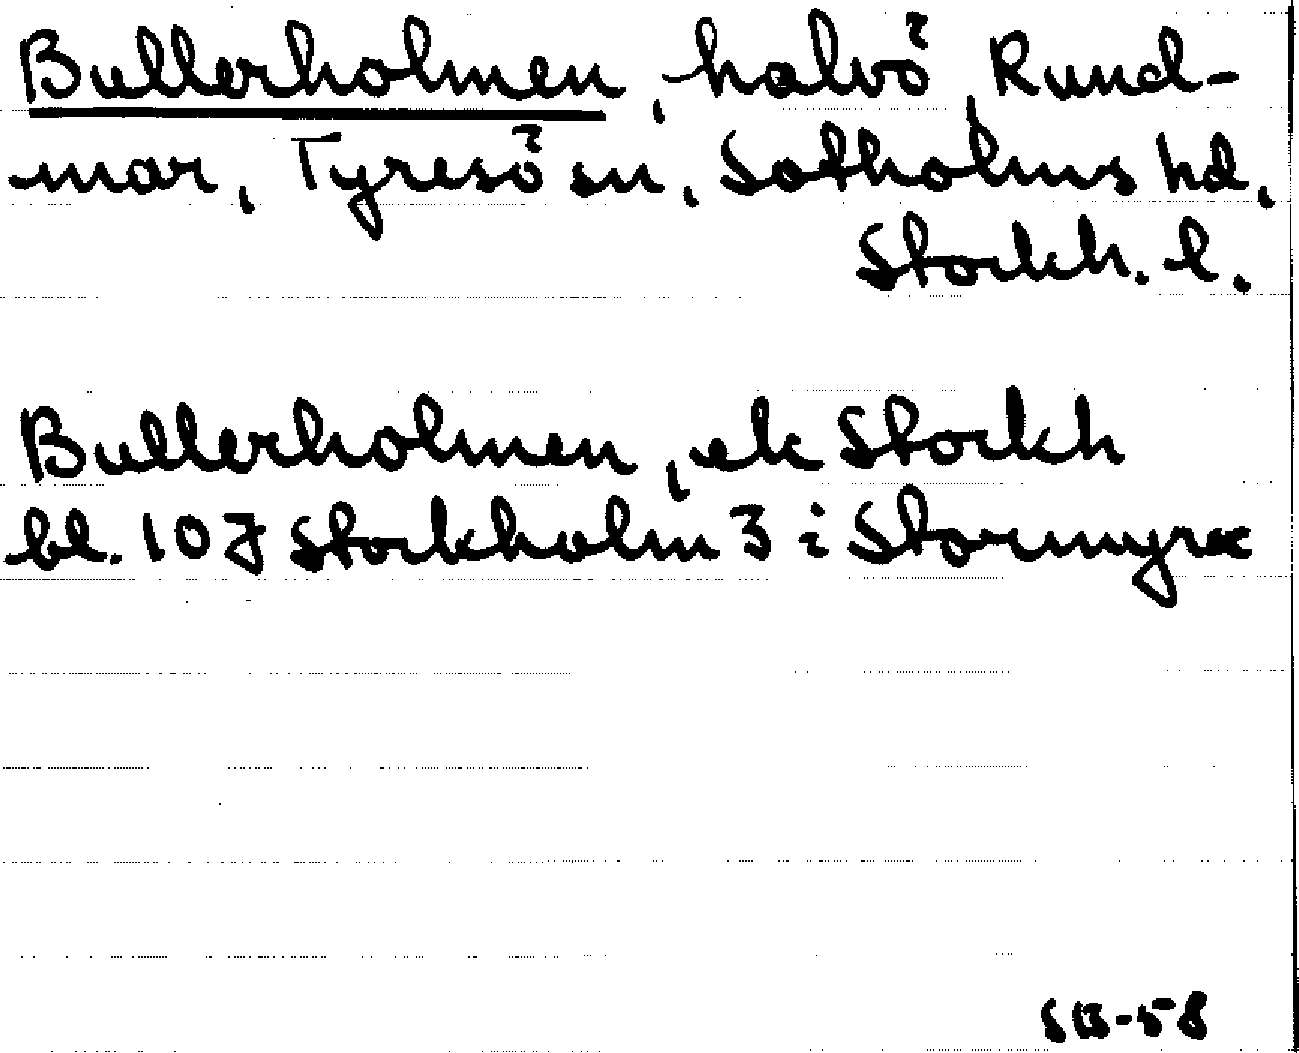 Bullerholmen, halvö, Rund-
mar, Tyresö sn, Sotholms hd,
Stockh. l.
Bullerholmen, ek Stockh
bl. 10 J Stockholm 3 i Stormyra
SB-58